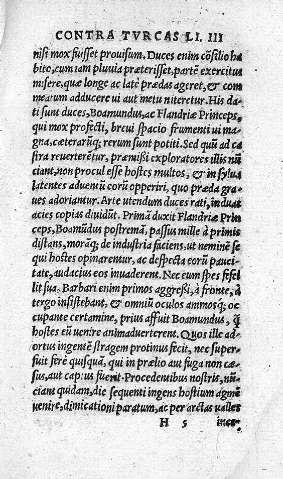 CONTRA TVRCAS LI. III
nisi mox fuisset prouisum. Duces enim cõsilio ha
bito, cum iam pluuia præterisset, partẽ exercitus
misere, quæ longe ac late prædas ageret, & com
meatum adducere ui aut metu niteretur. His da-
ti sunt duces, Boamundus, ac Flandriæ Princeps,
qui mox profecti, breui spacio frumenti ui ma-
gna, cæterarũq; rerum sunt potiti. Sed quũ ad ca
stra reuerterẽtur, præmissi exploratores illis nũ-
ciant, non procul esse hostes multos, & in sylua
latentes aduentũ eorũ opperiri, quo præda gra-
ues adoriantur. Arte utendum duces rati, in duas
acies copias diuidũt. Primã duxit Flandriæ Prin
ceps, Boamũdus postremã, passus mille à primis
distans, morãq; de industria faciens, ut nemine se
qui hostes opinarentur, ac despecta eorũ pauci-
tate, audacius eos inuaderent. Nec eum spes fefel
lit sua. Barbari enim primos aggressi, à fronte, à
tergo insistebant, & omniũ oculos animosq; oc
cupante certamine, prius affuit Boamundus, q̃
hostes eũ uenire animaduerterent. Quos ille ad-
ortus ingentẽ stragem protinus fecit, nec super-
fuit ferè quisquã, qui in prælio aut fuga non cæ-
sus, aut captus fuerit. Procedentibus nostris, nũ-
ciant quidam, die sequenti ingens hostium agmẽ
uenire, dimicationi paratum, ac per arctas ualles
H 5 ince-